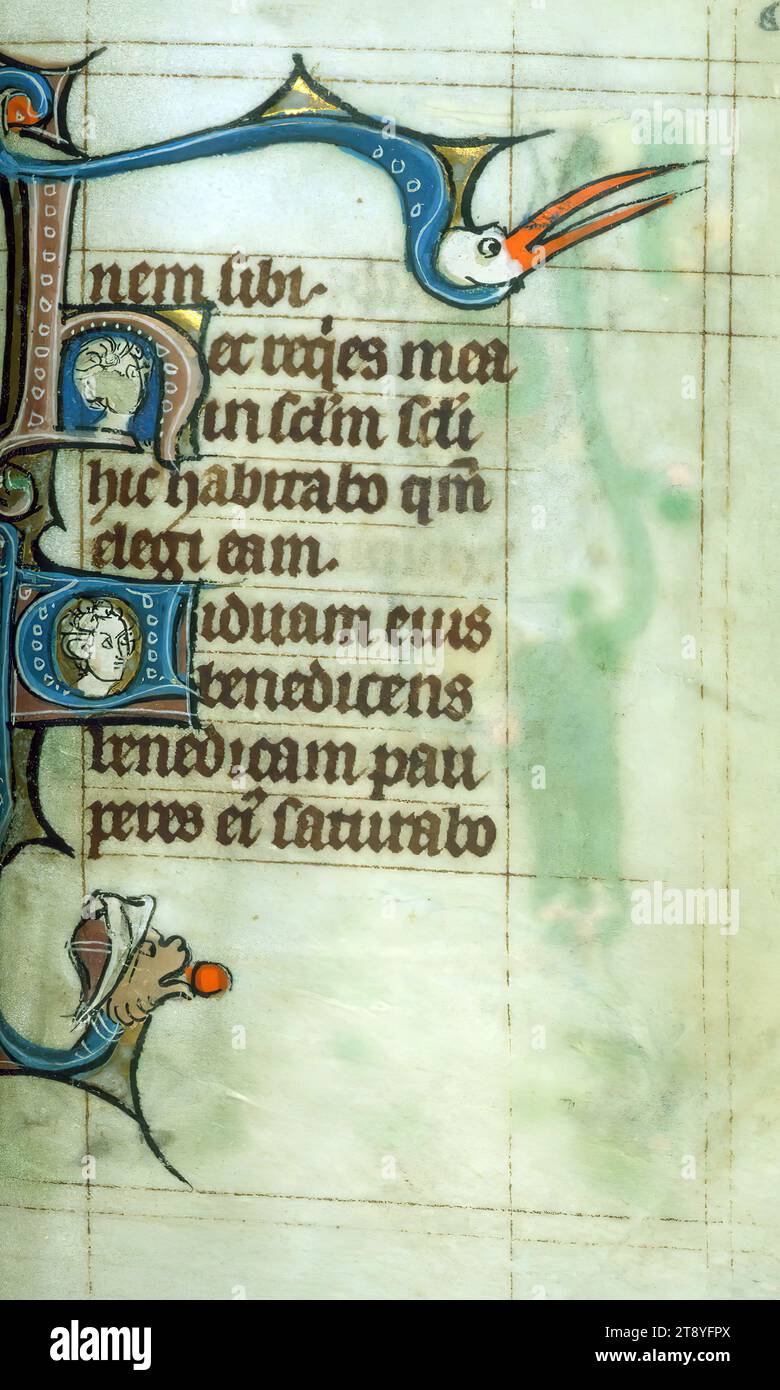 nem sibi.
Hec req̇es mea
in sc̄lm sc̄li
hic habitabo qm̄
elegi eam.
Uiduam eius
benedicens
benedicam pau
peres ei᷒ saturabo
alamy
Image ID: 2T8YFPX
www.alamy.com